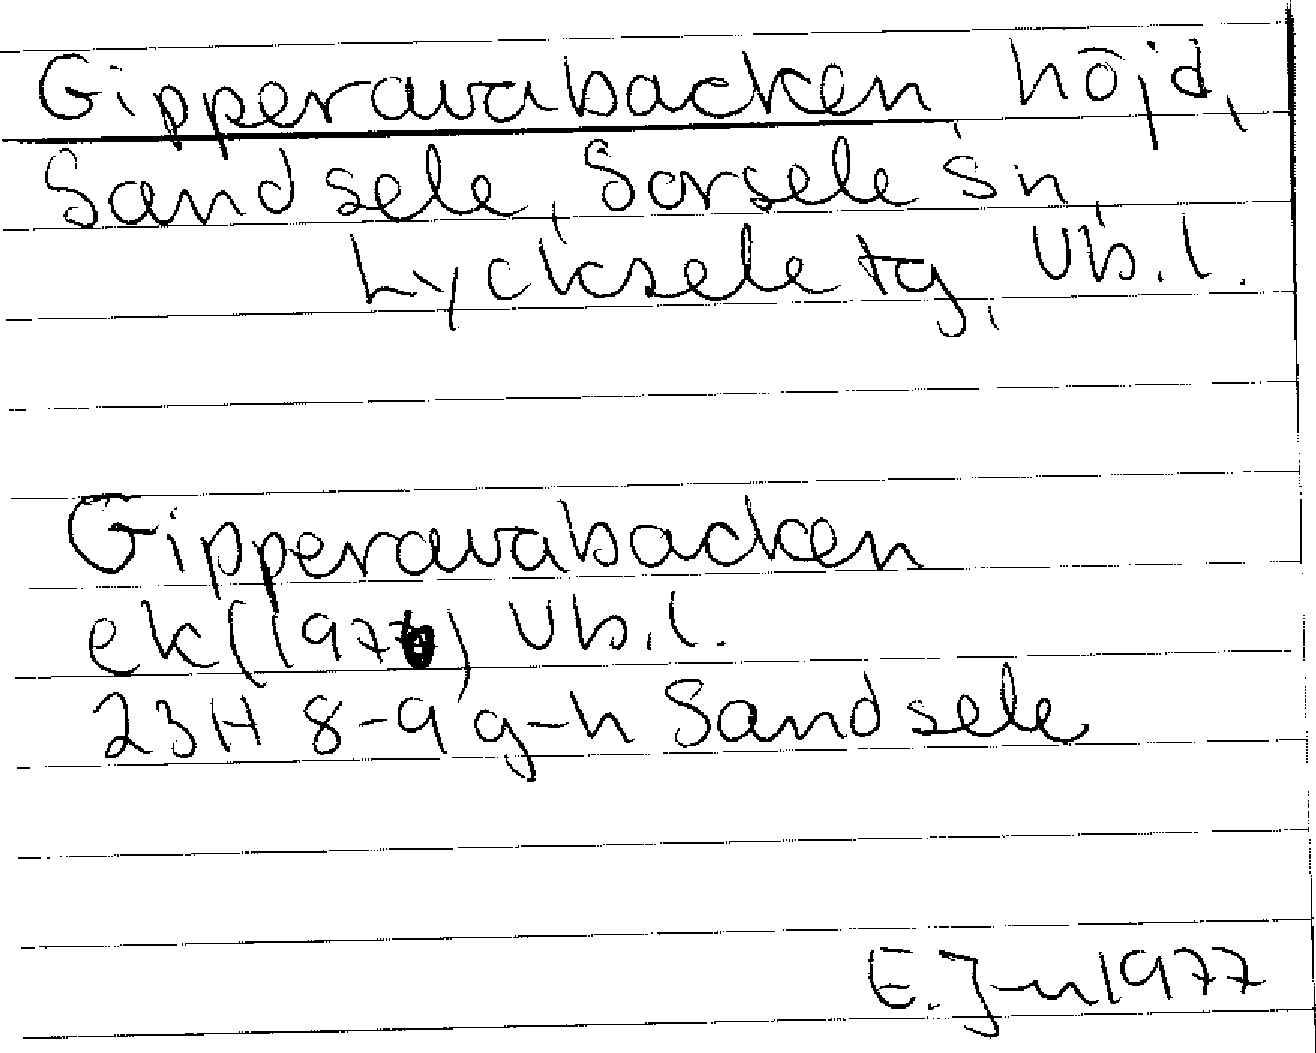 Gipperavabacken höjd,
Sandsele, Sorsele sn,
Lycksele tg, Vb.l.
Gipperavabacken
ek (1976) Vb.l.
23H 8-9 g-h Sandsele
E. J-n 1977